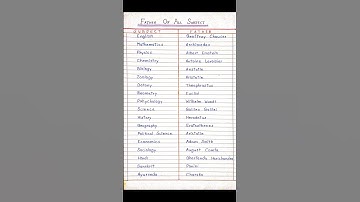 FATHER OF ALL SUBJECT
SUBJECT FATHER
English Geoffrey Chaucer
Mathematics Archimedes
Physics Albert Einstein
Chemistry Antoine Lavoisier
Biology Aristotle
Zoology Aristotle
Botany Theophrastus
Geometry Euclid
Psychology Wilhelm Wundt
Science Galileo Galilei
History Herodotus
Geography Eratosthenes
Political Science Aristotle
Economics Adam Smith
Sociology August Comte
Hindi Bhartendu Harishchandra
Sanskrit Panini
Ayurveda Charaka